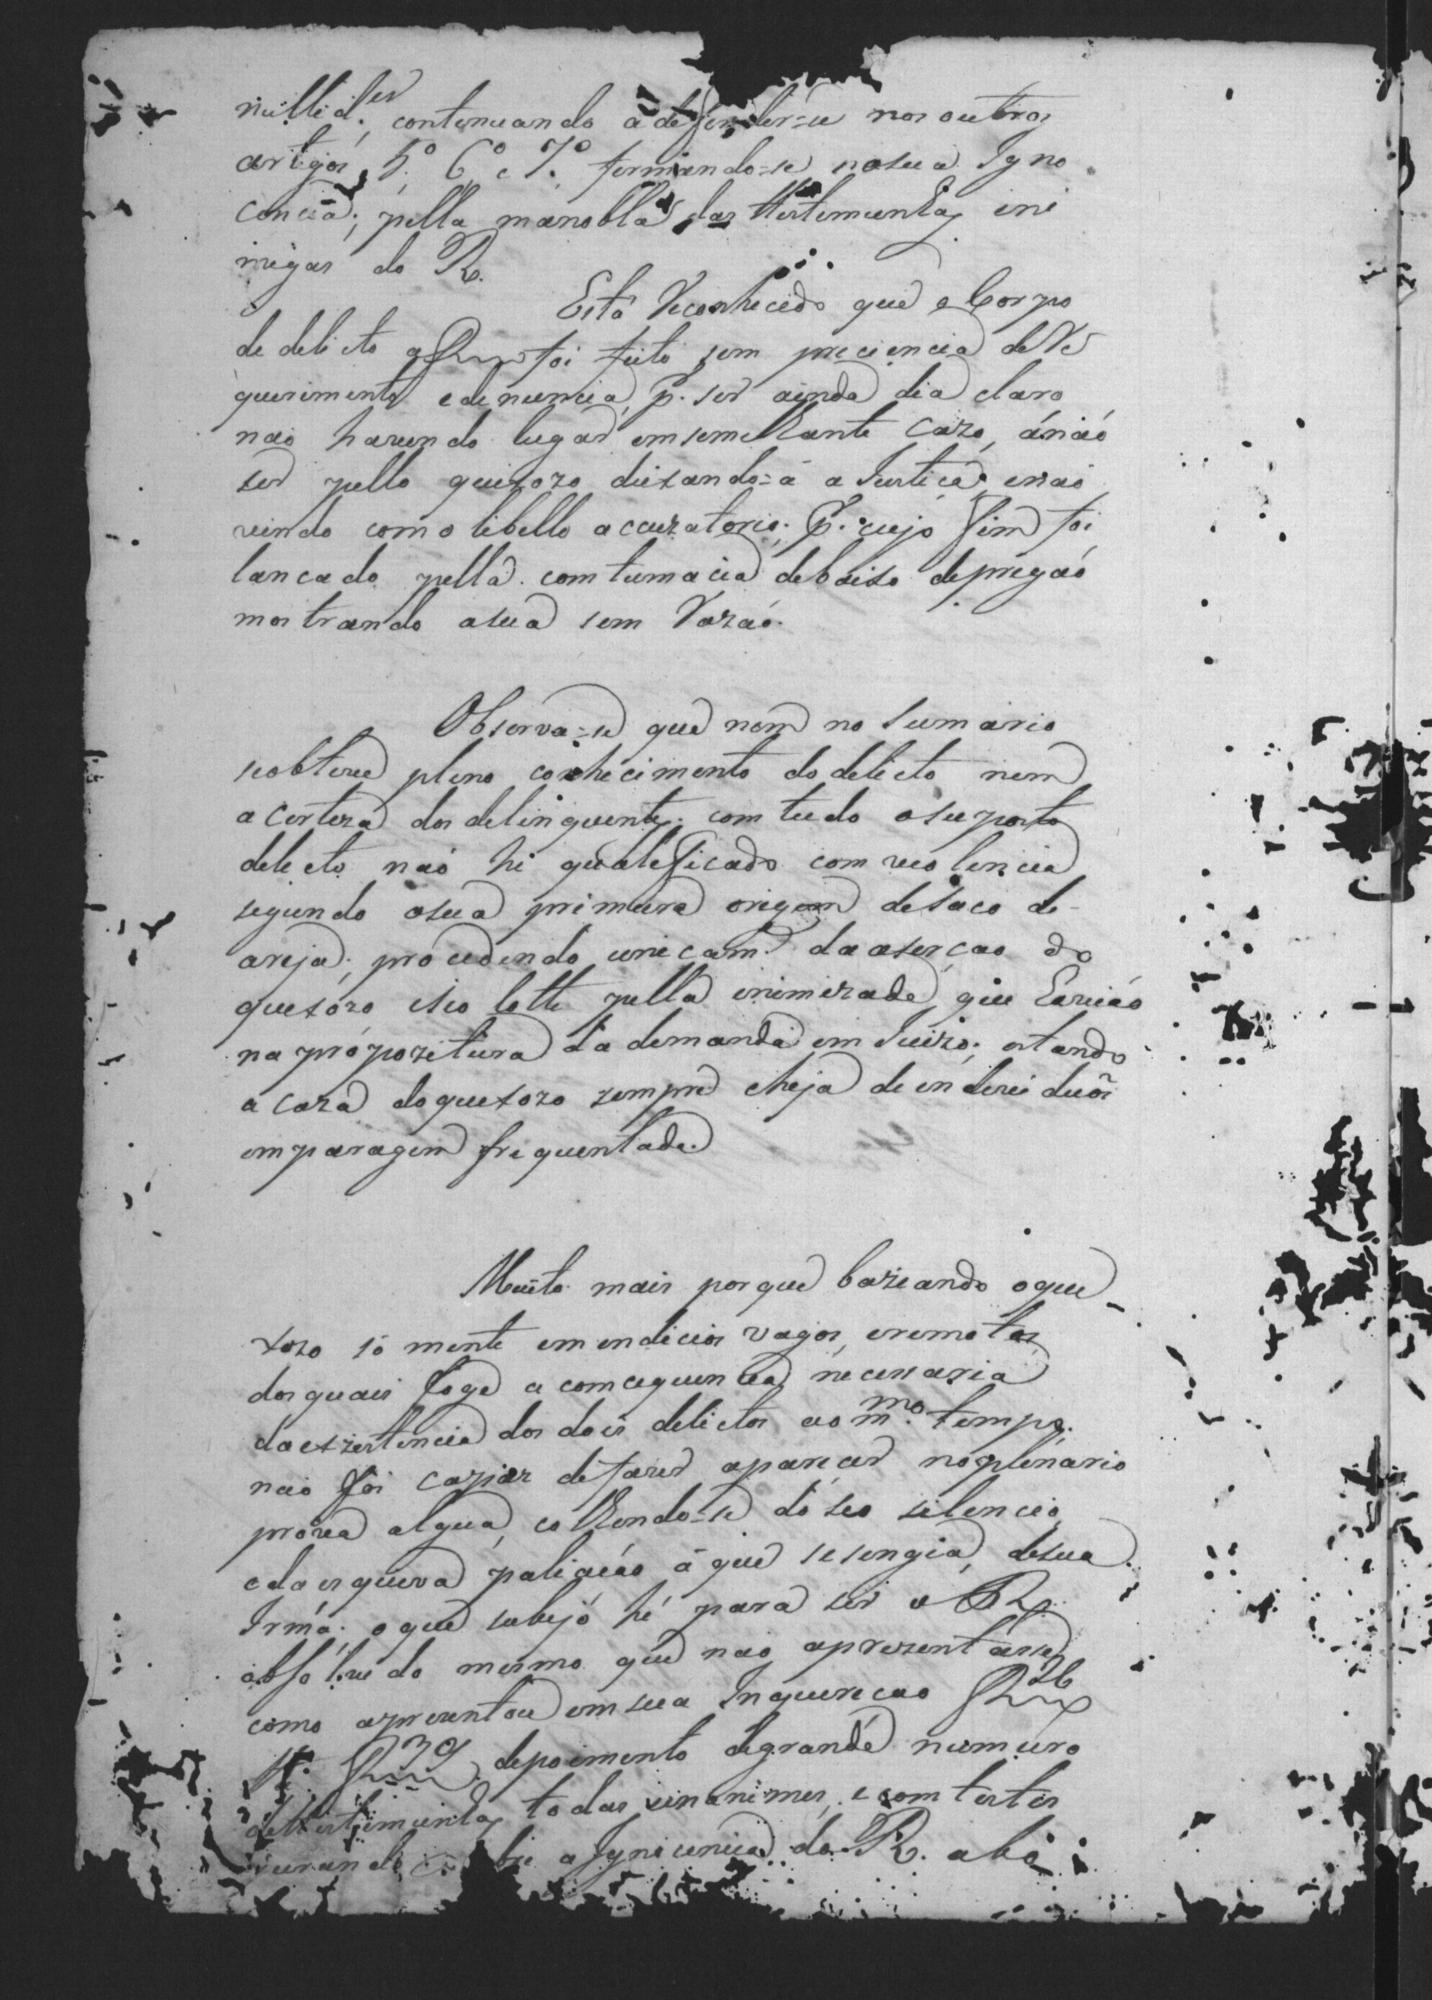 nullid.es, contenuando a defender-se nos outros
artigos, 5.º 6.º e 7.º firmando-se na sua Igno
cencia; pella manobla das ttestemunhas ini
migas do R.
Está Reconhecido que o Corpo
de delicto a f foi feito sem preciencia de Re
querimento e denuncia, p. ser ainda dia claro
não havendo lugar em semelhante cazo, a não
ser pello queixozo, deixando-a a Justiça, e não
vindo com o libello acauzatorio. P. cujo fim foi
lancado pella comtumacia debaixo de pregaõ
mostrando a sua sem Razaõ.
Observa-se que nem no Sumario
se obteve pleno conhecimento do delicto nem
a certeza dos delinquentes. com tudo o suposto
delicto não hé qualeficado com veolencia
segundo a sua primeira origem de saco de
areja; procedendo unicam.e da aserçao do
queixozo e seo lotte pella enimizade, que
na propozitura da demanda em Juizo; estando
a caza do queixozo sempre cheja de endeviduõs
em paragem frequentada.
Muito mais porque bazeando o que
xozo só mente em endicios vagos, e remotos
dos quais foge a comcequencia necessaria
da exzistencia dos dois delictos ao m.mo tempo.
nao foi capaz de fazer aparecer no plenario
prova algua, colhendo-se do seo silencio,
e da esquiva paliacáo á que se sengia, de sua
Irmá. o que sobejo hé para ser o R.
absolvedo mesmo que nao aprezentásse
como aprezentou em sua Inquirecao f 26
th. f 39, depoimento de grande numero
de ttestemunhas todas unanimes, e comtestes
jurando sobre a Ignocencia do R. abo